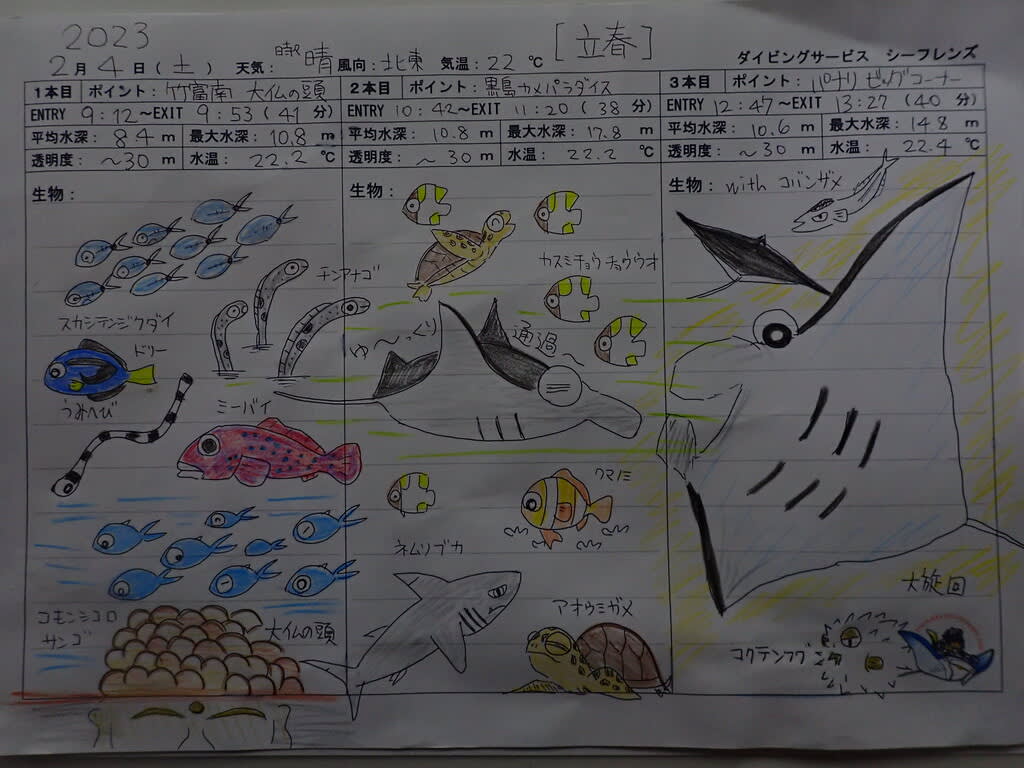 2023
2月4日(土) 天気:時々晴 風向:北東 気温:22℃ [立春] ダイビングサービス シーフレンズ
1本目 ポイント:竹富南 大仏の頭
ENTRY 9:12~EXIT 9:53(41分)
平均水深:8.4m 最大水深:10.8m
透明度:~30m 水温:22.2℃
生物:
スカシテンジクダイ
チンアナゴ
ドリー
うみへび
ミーバイ
コモンシコロ
サンゴ
大仏の頭
2本目 ポイント:黒島カメパラダイス
ENTRY 10:42~EXIT 11:20(38分)
平均水深:10.8m 最大水深:17.8m
透明度:~30m 水温:22.2℃
生物:
カスミチョウチョウウオ
ゆ~っくり
通過~
クマノミ
ネムリブカ
アオウミガメ
3本目 ポイント:パナリ ビッグコーナー
ENTRY 12:47~EXIT 13:27(40分)
平均水深:10.6m 最大水深:14.8m
透明度:~30m 水温:22.4℃
生物:with コバンザメ
大旋回
コクテンフグ